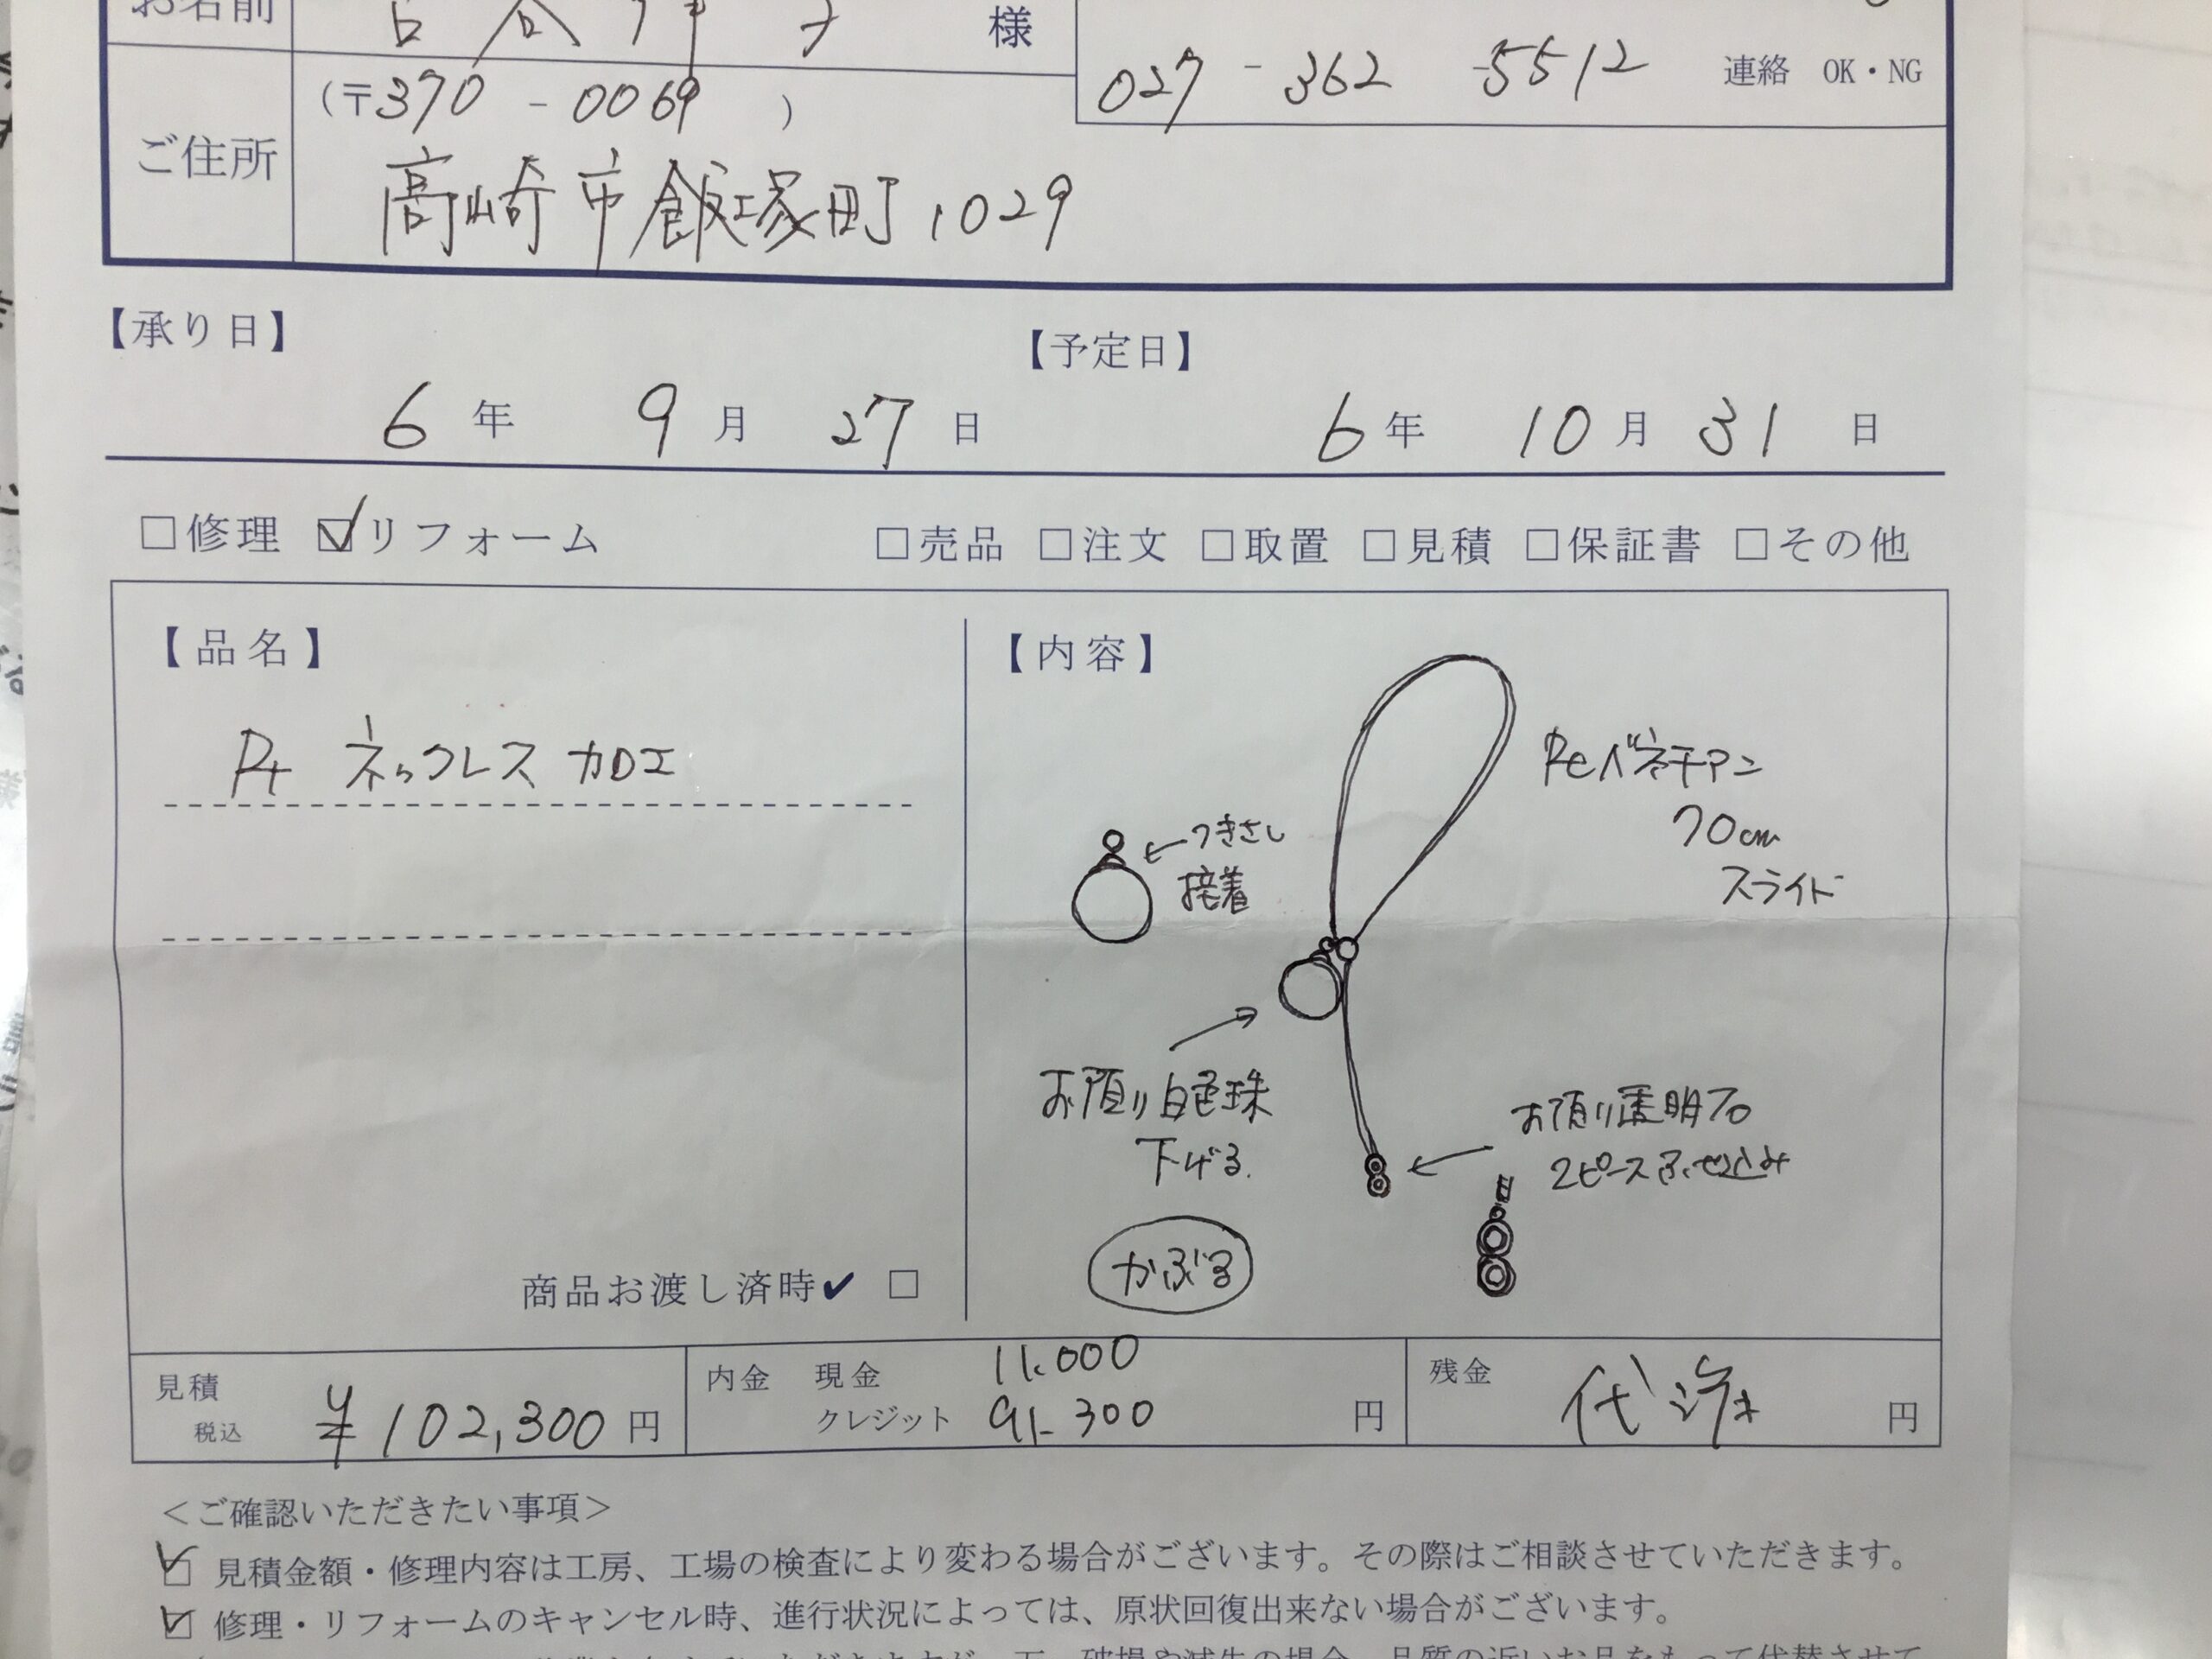 お名前
様
027-362-5512 連絡 OK・NG
(〒370-0069)
ご住所
高崎市飯塚町1029
【承り日】
6年 9月 27日
【予定日】
6年 10月 31日
□修理 ☑リフォーム □売品 □注文 □取置 □見積 □保証書 □その他
【品名】
Pt ネックレス加工
商品お渡し済時✔ □
【内容】
ベネチアン
70cm
スライド
←つきさし
接着
お預り白色珠
下げる.
お預り透明石
2ピースふせ込み
かぶる
見積
税込
¥102,300円
内金 現金 11.000
クレジット 91.300 円
残金 代済 円
＜ご確認いただきたい事項＞
☑ 見積金額・修理内容は工房、工場の検査により変わる場合がございます。その際はご相談させていただきます。
☑ 修理・リフォームのキャンセル時、進行状況によっては、原状回復出来ない場合がございます。